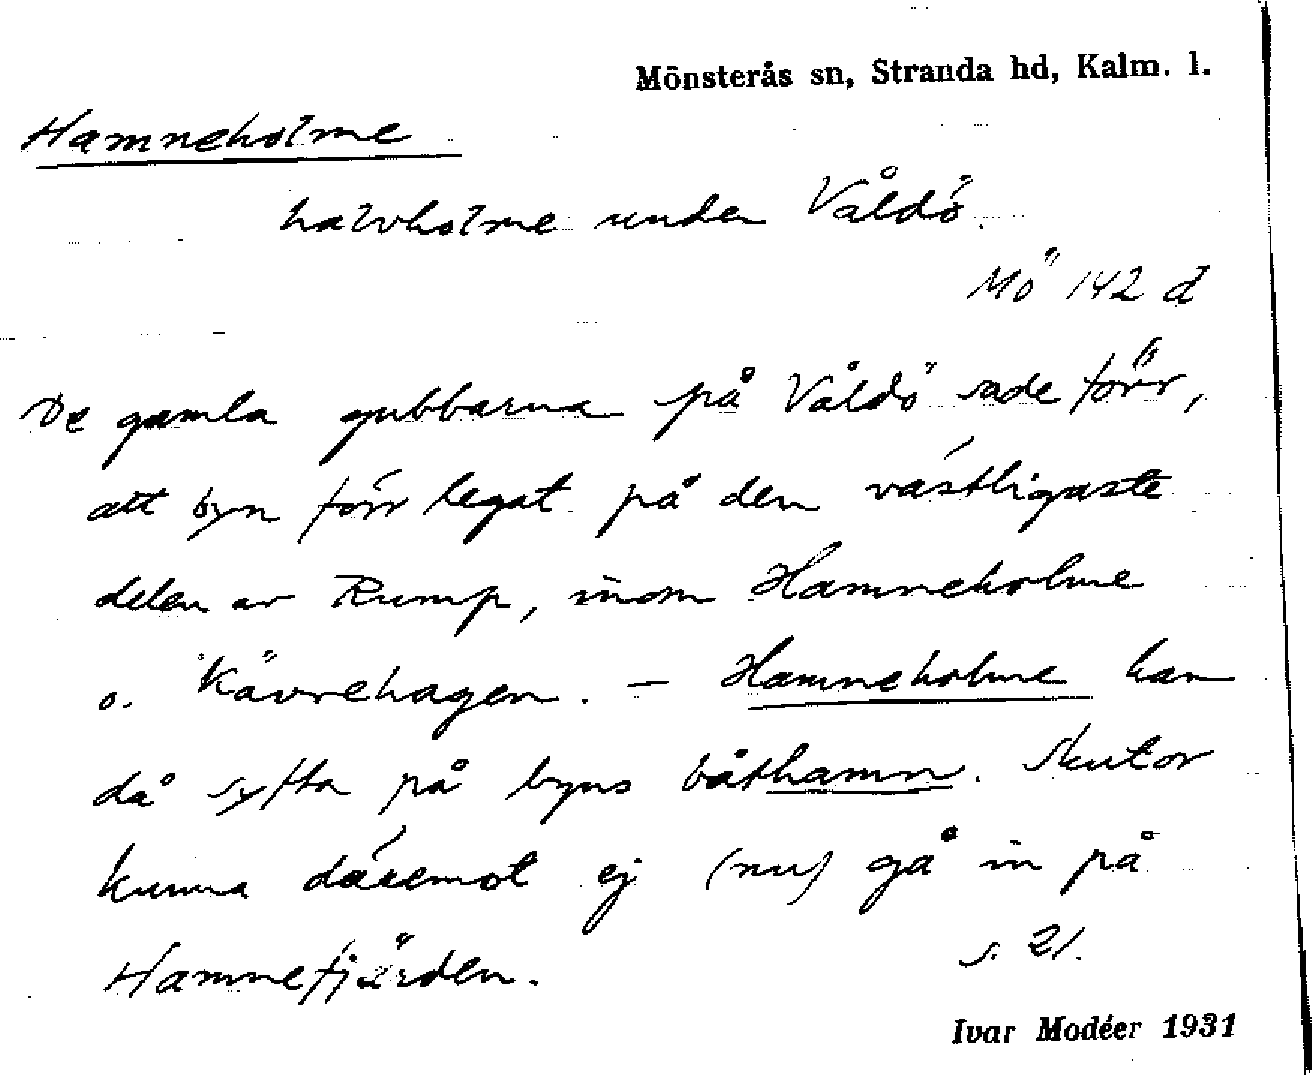 Mönsterås sn, Stranda hd, Kalm. l.
Hamneholme
halvholme under Våldö.
Mö 142 d
De gamla gubbarna på Våldö sade förr,
att byn förr legat på den västligaste
delen av Rump, inom Hamneholme
o. Kävrehagen. – Hamneholme kan
då syfta på byns båthamn. Skutor
kunna däremot ej (nu) gå in på
Hamnefjärden.
s. 21.
Ivar Modéer 1931